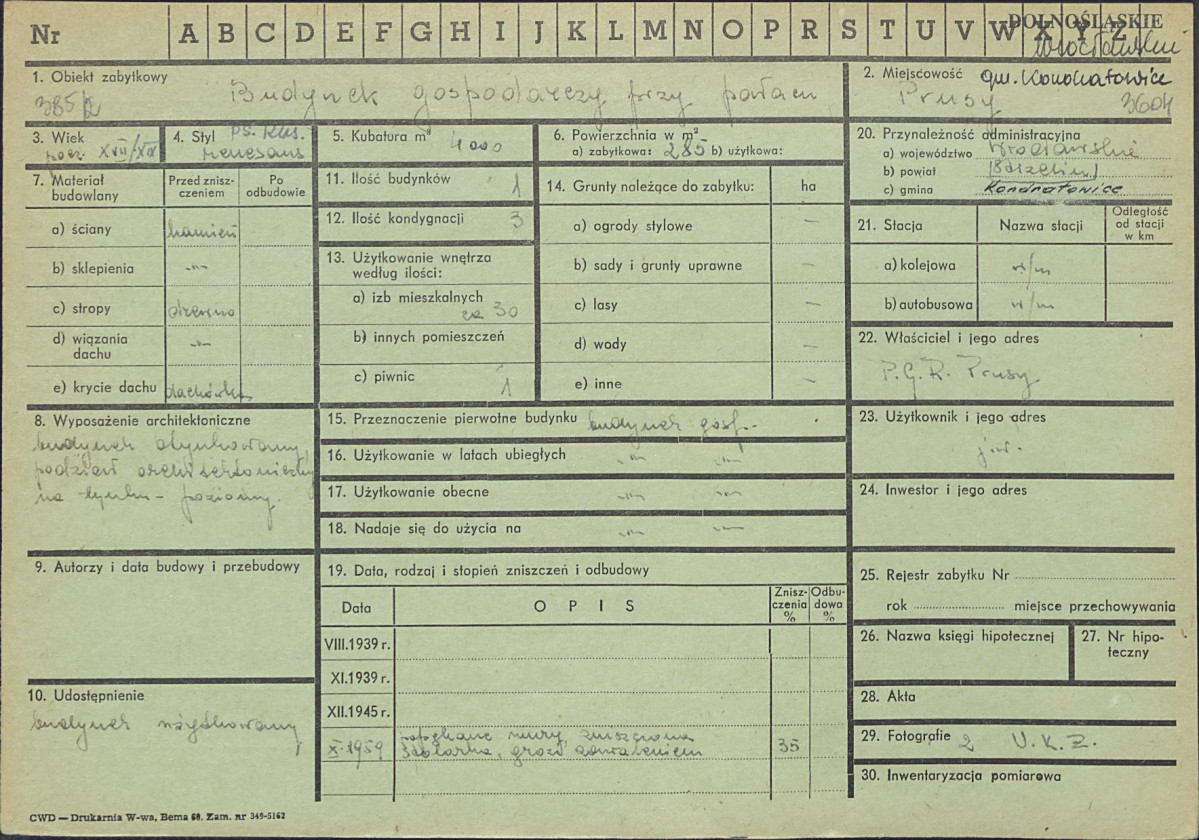 Nr A B C D E F G H I J K L M N O P R S T U V W X Y Z
DOLNOŚLĄSKIE
wrocławskie
1. Obiekt zabytkowy
385/2
Budynek gospodarczy przy pałacu
2. Miejscowość gm. Kondratowice
Prusy 3604
3. Wiek
pocz. XVII/XIX
4. Styl ps. kl.
renesans
5. Kubatura m³ 4000
6. Powierzchnia w m²
a) zabytkowa: 285 b) użytkowa:
20. Przynależność administracyjna
a) województwo Wrocławskie
b) powiat (Strzelin)
c) gmina Kondratowice
7. Materiał budowlany
Przed znisz-
czeniem
Po
odbudowie
a) ściany kamień
b) sklepienia -"-
c) stropy drewno
d) wiązania
dachu -"-
e) krycie dachu dachówka
11. Ilość budynków 1
12. Ilość kondygnacji 3
13. Użytkowanie wnętrza
według ilości:
a) izb mieszkalnych
ca 30
b) innych pomieszczeń
c) piwnic 1
14. Grunty należące do zabytku: ha
a) ogrody stylowe —
b) sady i grunty uprawne —
c) lasy —
d) wody —
e) inne —
21. Stacja Nazwa stacji
Odległość
od stacji
w km
a) kolejowa w/m
b) autobusowa w/m
22. Właściciel i jego adres
P.G.R. Prusy
8. Wyposażenie architektoniczne
budynek otynkowany,
podział architektoniczny
na tynku - poziomy.
15. Przeznaczenie pierwotne budynku budynek gosp.
16. Użytkowanie w latach ubiegłych -"- -"-
17. Użytkowanie obecne -"- -"-
18. Nadaje się do użycia na -"- -"-
23. Użytkownik i jego adres
j.w.
24. Inwestor i jego adres
9. Autorzy i data budowy i przebudowy
19. Data, rodzaj i stopień zniszczeń i odbudowy
Data OPIS
Znisz-
czenia
%
Odbu-
dowa
%
VIII.1939 r.
XI.1939 r.
XII.1945 r.
X-1959 popękane mury, zniszczona
stolarka, grozi zawaleniem 35
25. Rejestr zabytku Nr
rok miejsce przechowywania
26. Nazwa księgi hipotecznej
27. Nr hipo-
teczny
10. Udostępnienie
budynek użytkowany
28. Akta
29. Fotografie 2 U.K.Z.
30. Inwentaryzacja pomiarowa
CWD — Drukarnia W-wa, Bema 60. Zam. nr 349-5162